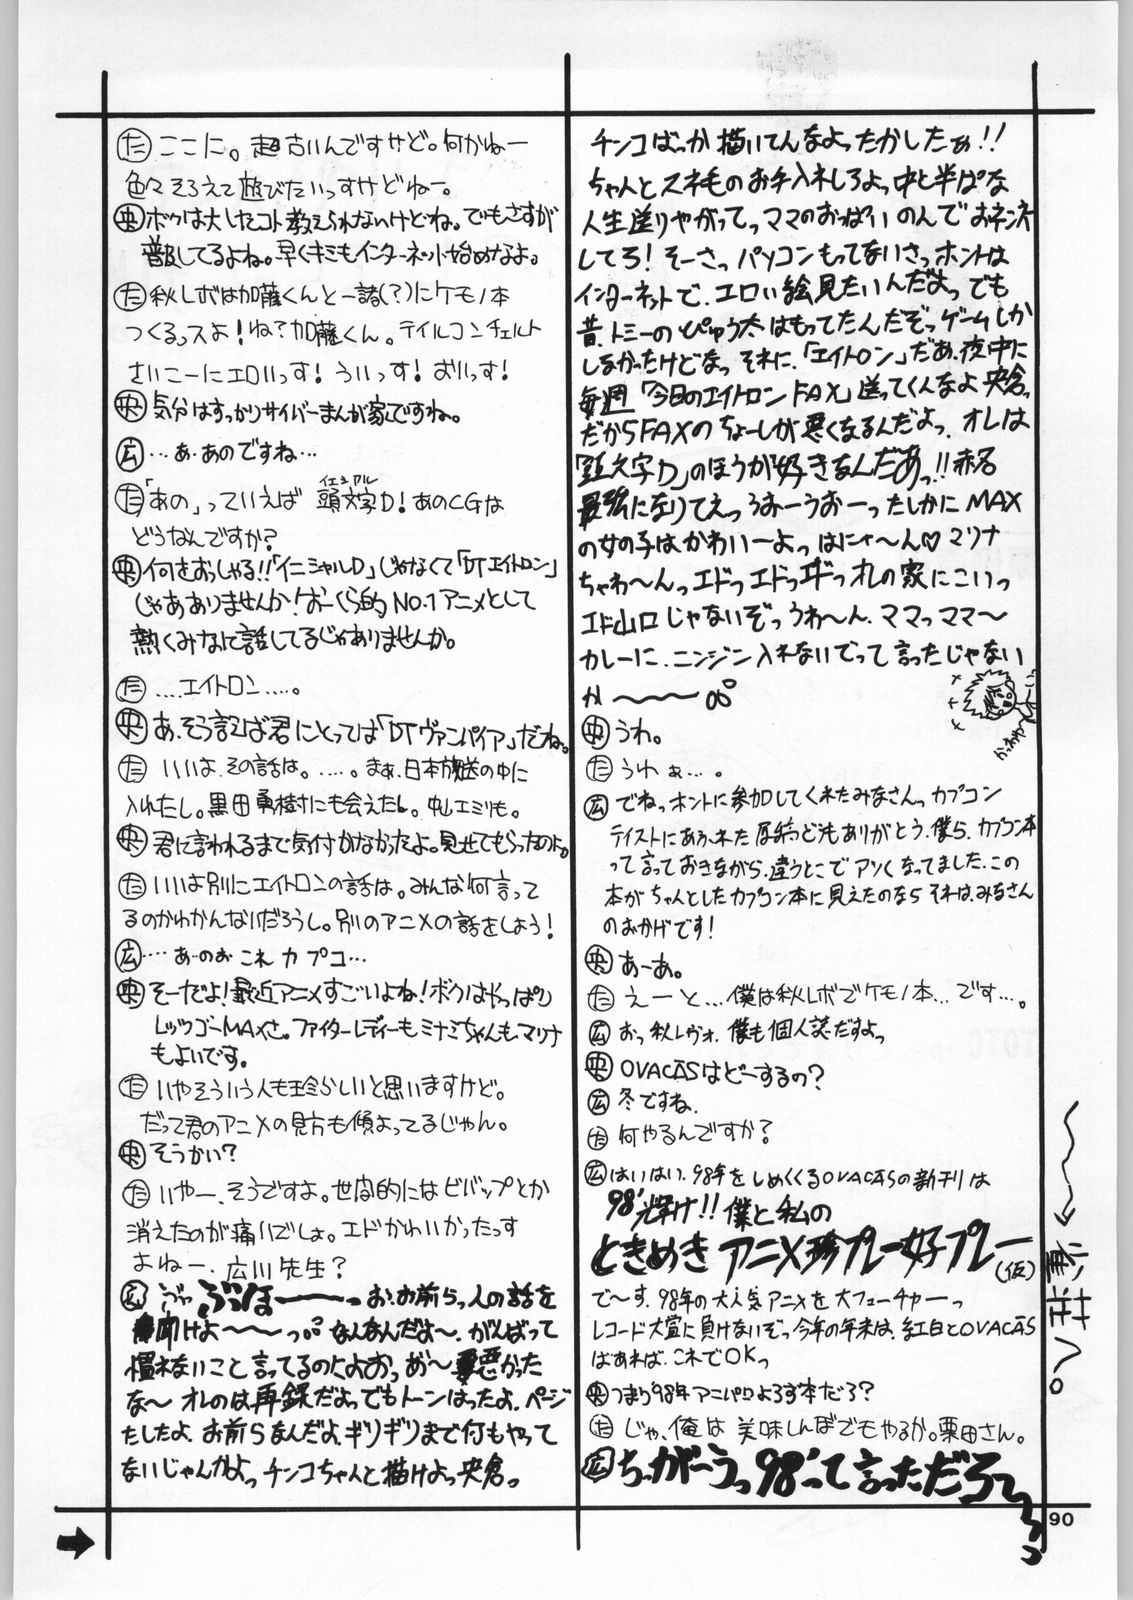 た ここに。超古いんですけど。何かねー
色々そろえて遊びたいっすけどねー。
央 ボクは大したコト教えられないけどね。でもさすが
普及してるよね。早くキミもインターネット始めなよ。
た 秋レボは加藤くんと一諸(?)にケモノ本
つくるっスよ!ね?加藤くん。テイルコンチェルト
さいこーにエロいっす!ういっす!おいっす!
央 気分はすっかりサイバーまんが家ですね。
広 …あ、あのですね…
た 「あの」っていえば 頭文字D!あのCGな
イニシャル
どうなんですか?
央 何をおっしゃる!!「イニシャルD」じゃなくて「DTエイトロン」
じゃあありませんか!おーくら的NO.1アニメとして
熱くみなに話してるじゃありませんか。
た ....エイトロン....。
央 あ、そう言えば君にとっては「DTヴァンパイア」だね。
た いいよ、その話は。……。まぁ、日本放送の中に
入れたし。黒田勇樹にも会えたし。中しエミリも。
央 君に言われるまで気付かなかったよ。見せてもらったのよ。
た いいよ別にエイトロンの話は。みんな何言って
るのかわかんないだろうし。別のアニメの話をしよう!
広 …… あ…のお これ カプコ…
央 そーだよ!最近アニメすごいよね!ボクはやっぱり
レッツゴーMAXさ。ファイターレディーもミナミちゃんも、マリナ
もよいです。
た いやそういう人も珍らしいと思いますけど。
だって君のアニメの見方も傾よってるじゃん。
央 そうかい?
た いやー、そうですよ。世間的にはビバップとか
消えたのが痛いでしょ。エドかわいかったっす
よねー、広川先生?
広 ぶっほーーーっ お、お前らっ人の話を
聞けよ〜〜〜っ なんなんだよ〜、がんばって
慣れないこと言ってるのによおっ が〜悪かった
な〜 オレのは再録だよ、でもトーンはったよ、ページ
たしたよ、お前らなんだよ、ギリギリまで何もやって
ないじゃんかよっ チンコちゃんと描けよっ 央倉っ
チンコばっか描いてんなよったかしたぁ!!
ちゃんとスネ毛のお手入れしろよっ中と半ぱな
人生送りやがってっママのおっぱいのんでおネンネ
してろ!そーさっパソコンもってないさっホントは
インターネットで、エロい絵見たいんだよっでも
昔、トミーのぴゅう太はもってたんだぞっゲームしか
しなかったけどなっそれに、「エイトロン」だあ、夜中に
毎週「今日のエイトロンFAX」送ってくんなよ央倉っ
だからFAXのちょーしが悪くなるんだよっ、オレは
「頭文字D」のほうが好きなんだあっ!!赤名
最強になりてえっうおーうおーったしかにMAX
の女の子はかわいーよっはにゃ〜ん♡マリナ
ちゃわ〜んっエドっエドっエドっオレの家にこいっ
エド山口じゃないぞっうわ〜ん、ママっママ〜
カレーに、ニンジン入れないでって言ったじゃない
か〜〜〜〜
央 うわ。
た うわぁ…。
広 でねっホントに参加してくれたみなさんっカプコン
テイストにあふれた原稿っどうもありがとう、僕ら、カプコン本
って言っておきながら、違うとこでアツくなってました、この
本がちゃんとしたカプコン本に見えたのならそれは、みなさん
のおかげです!
央 あーあ。
た えーと…僕は秋レボでケモノ本…です…。
広 おっ秋レヴォ、僕も個人誌だすよっ
央 OVACASはどーするの?
広 冬ですね、
た 何やるんですか?
広 はいはい、98年をしめくくるOVACASの新刊は
98'輝け!!僕と私の
ときめき アニメ珍プレー好プレー
(仮)
で〜す、98年の大人気アニメを大フューチャーっ
レコード大賞に負けないぞっ今年の年末は、紅白とOVACAS
ばあれば、これでOKっ
央 つまり'98年アニパロよろず本だろ?
た じゃ、俺は美味しんぼでもやるか。栗田さん。
広 ちっが〜うっ98'って言っただろ〜っっっ
90